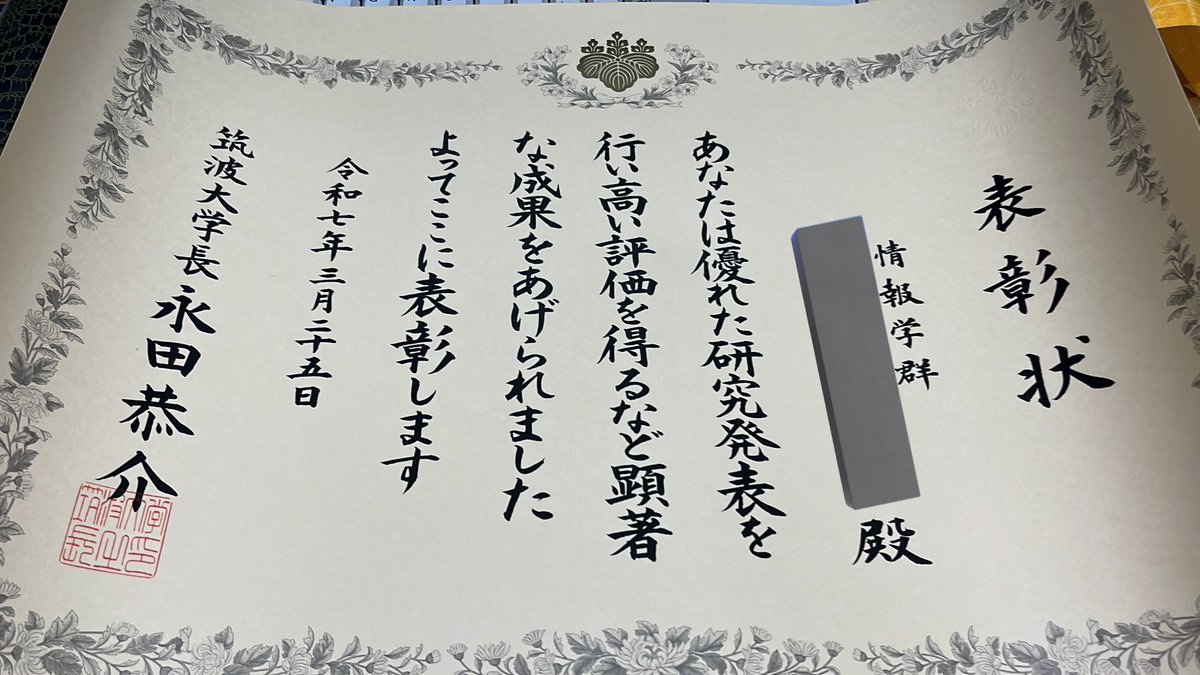 表彰状
情報学群
殿
あなたは優れた研究発表を
行い高い評価を得るなど顕著
な成果をあげられました
よってここに表彰します
令和七年三月二十五日
筑波大学長 永田恭介
筑波大学長之印